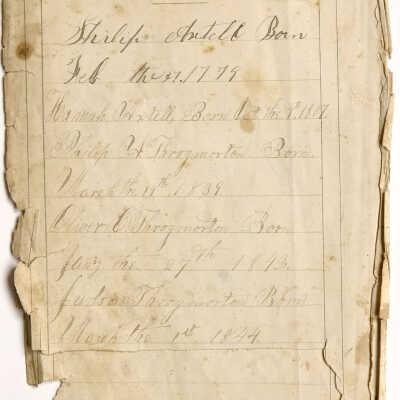 Philip Axtell Born
Feb the 21, 1779
Hannah Axtell, Born Oct the 8, 1807
Philip A Throgmorton Born.
March the 11th, 1839.
Oliver C Throgmorton Born
Jany the 27th 1843.
Judson Throgmorton Born
March the 1st, 1844